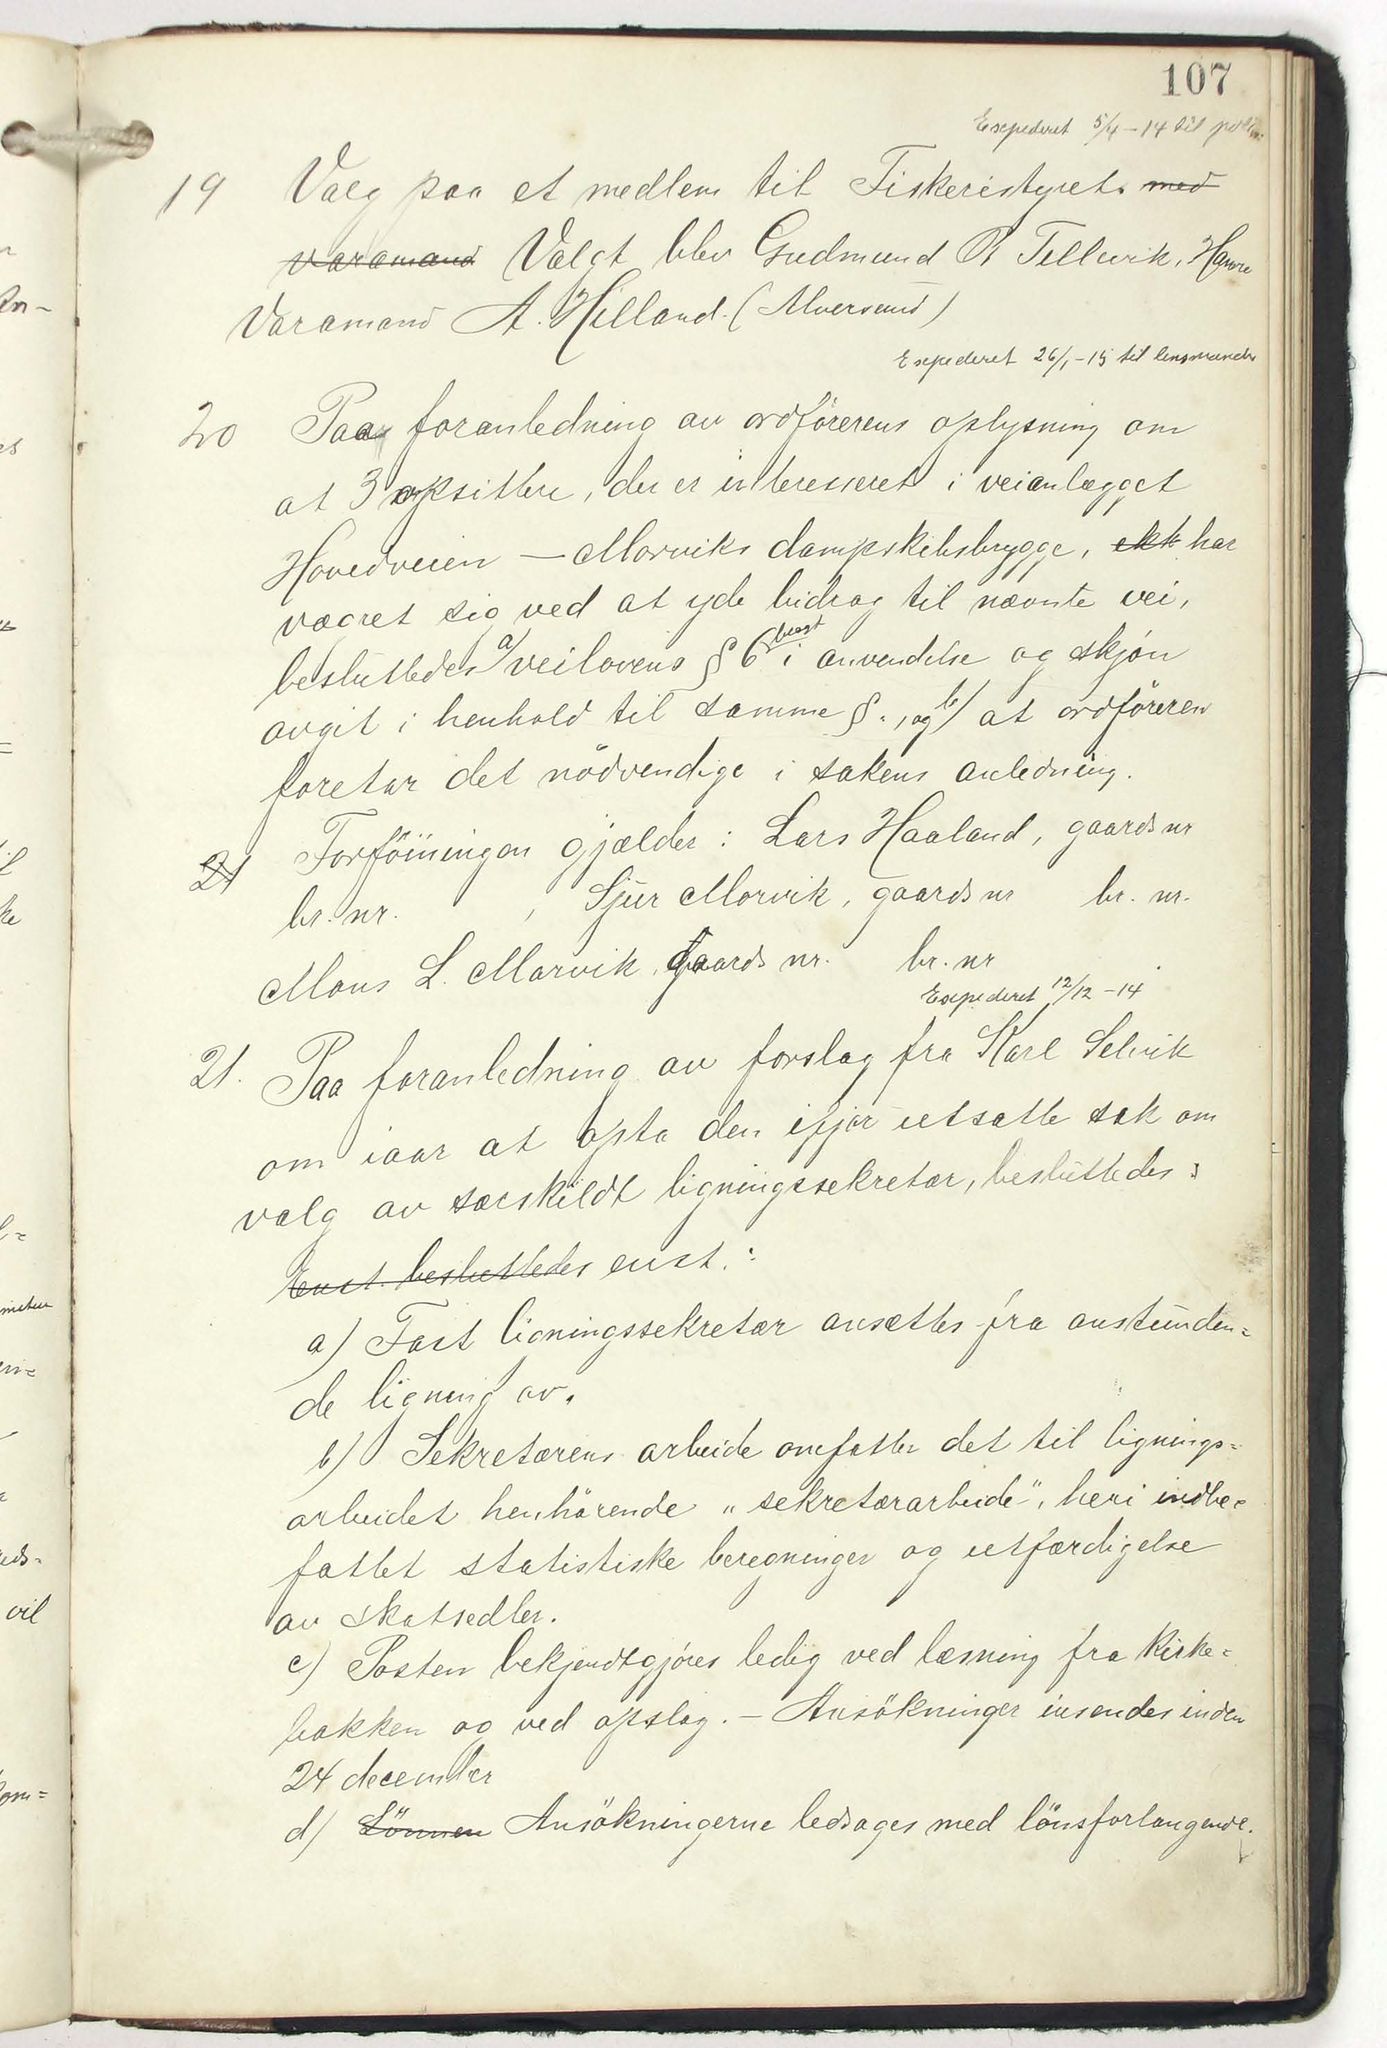 107
Expederet 5/4 - 14 til
19 Valg paa et medlem til Fiskeristyret. med
varamand Valgt blev Gudmund P. Tellevik, Hamre
Varamand A. Helland. (Alversund)
Expederet 26/1 - 15 til lensmanden
20 Paa foranledning av ordförerens oplysning om
at 3 opsittere, der er interesseret i veianlægget
Hovedveien — Morviks dampskibsbrygge, ekk har
vægret sig ved at yde bidrag til nævnte vei,
besluttedes a) veilovens § 6 bragt i anvendelse og skjön
avgit i henhold til samme §., og b) at ordföreren
foretar det nödvendige i sakens anledning.
21 Forföiningen gjælder: Lars Haaland, gaards nr
br. nr. , Sjur Morvik, gaards nr br. nr.
Mons L. Morvik, gaards nr. br. nr
Expederet 12/12 - 14
21. Paa foranledning av forslag fra Karl Selvik
om iaar at opta den ifjor utsatte sak om
valg av særskildt ligningssekretær, besluttedes:
Enst. besluttedes enst.:
a) Fast ligningssekretær ansættes fra anstunden=
de ligning av.
b) Sekretærens arbeide omfatter det til lignings=
arbeidet henhörende „sekretærarbeide“, heri indbe=
fattet statistiske beregninger og utfærdigelse
av skatsedler.
c) Posten bekjendtgjöres ledig ved læsning fra kirke=
bakken og ved opslag. — Ansökninger insendes inden
24 december
d) Lönnen Ansökningerne ledsages med lönsforlangende.